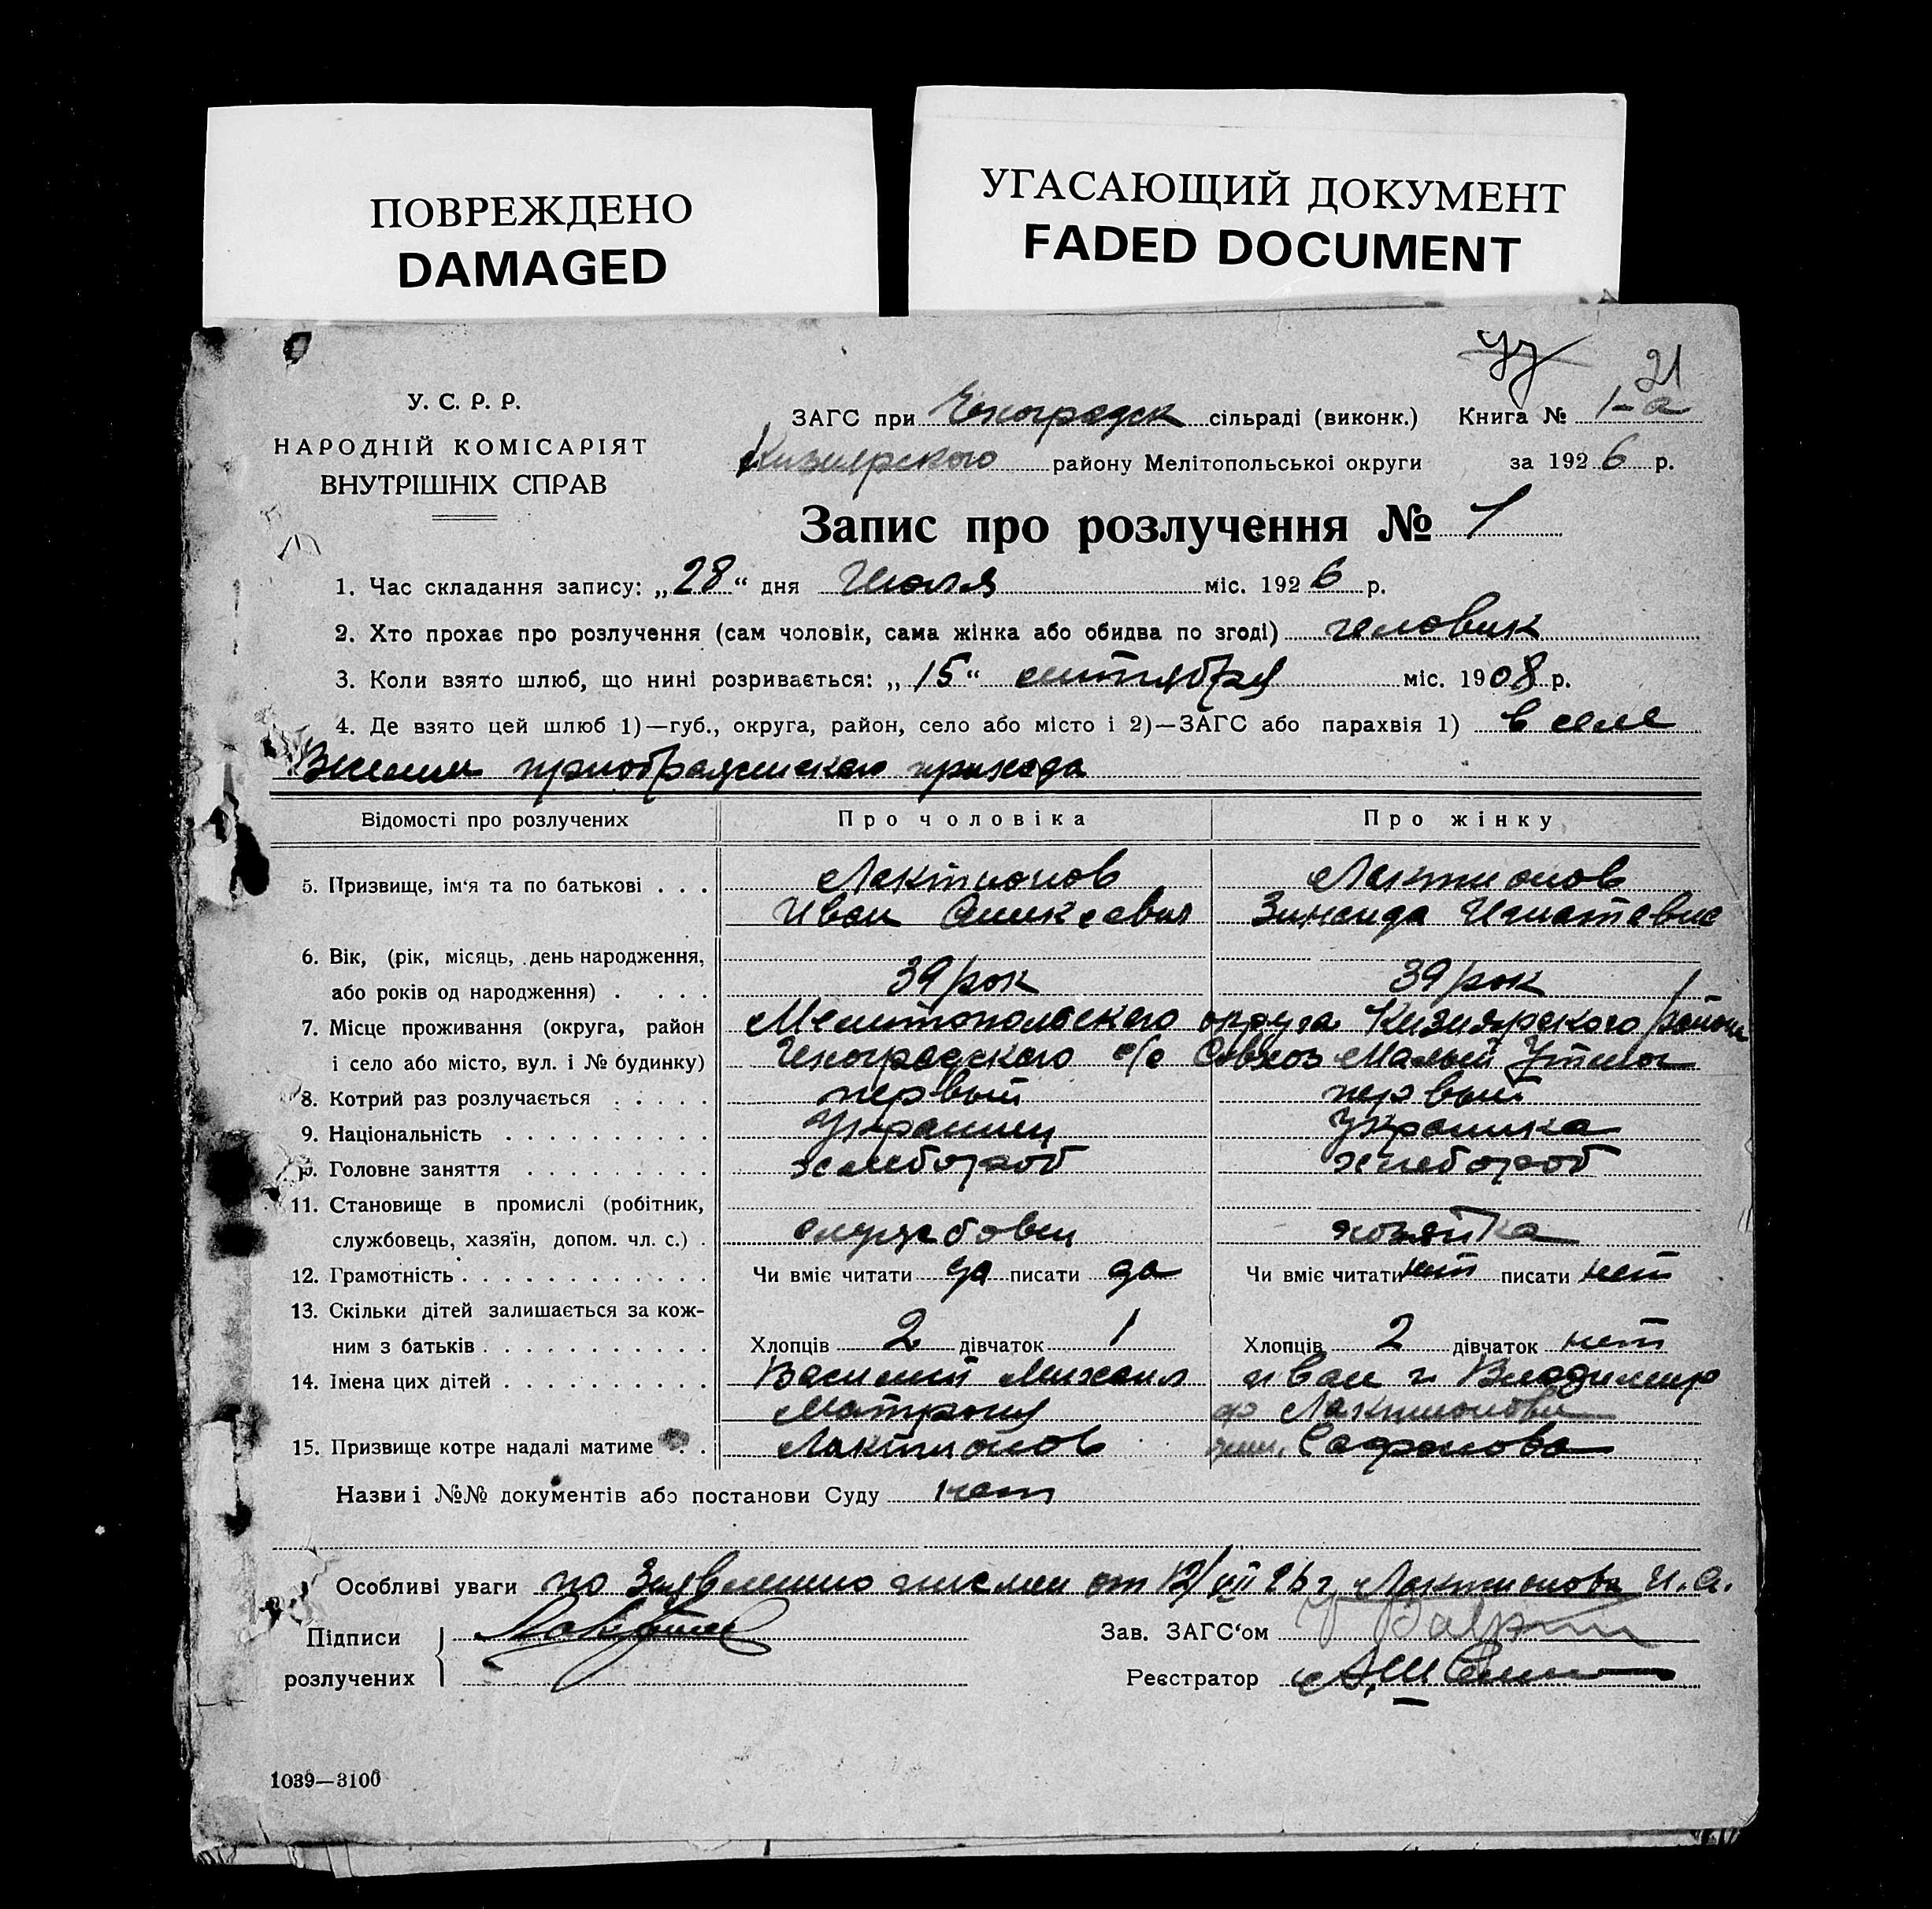 ПОВРЕЖДЕНО
DAMAGED
УГАСАЮЩИЙ ДОКУМЕНТ
FADED DOCUMENT
21
У. С. Р. Р.
НАРОДНІЙ КОМІСАРІЯТ
ВНУТРІШНІХ СПРАВ
ЗАГС при сільраді (виконк.) Книга № 1-а
Кизиярского району Мелітопольської округи за 1926 р.
Запис про розлучення № 1
1. Час складання запису: „28“ дня Июля міс. 1926 р.
2. Хто прохає про розлучення (сам чоловік, сама жінка або обидва по згоді) человик
3. Коли взято шлюб, що нині розривається: „15“ сентября міс. 1908 р.
4. Де взято цей шлюб 1)—губ., округа, район, село або місто і 2)—ЗАГС або парахвія 1) в селе
прихода
Відомості про розлучених Про чоловіка Про жінку
5. Призвище, ім'я та по батькові . . . Лактионов Лактионов
Иван Зинаида
6. Вік, (рік, місяць, день народження,
або років од народження) . . . . 39 рок 39 рок
7. Місце проживання (округа, район Мелитопольского округа Кизиярского района
і село або місто, вул. і № будинку) с/с Совхоз Малый Утлюг
8. Котрий раз розлучається . . . . . первый первый
9. Національність . . . . . . . . . . Украинец Украинка
10. Головне заняття . . . . . . . . . хлебороб хлебороб
11. Становище в промислі (робітник,
службовець, хазяїн, допом. чл. с.) . службовец хозяйка
12. Грамотність . . . . . . . . . . . . Чи вміє читати да писати да Чи вміє читати нет писати нет
13. Скільки дітей залишається за кож-
ним з батьків . . . . . . . . . . . Хлопців 2 дівчаток 1 Хлопців 2 дівчаток нет
14. Імена цих дітей . . . . . . . . . . Василий Михаил Иван и Владимир
Матрона Лактионови
15. Призвище котре надалі матиме . . Лактионов Сафонова
Назви і №№ документів або постанови Суду нет
Особливі уваги по Заявлению от 12/VII 26 г. Лактионова И. А.
Підписи
розлучених
Зав. ЗАГС'ом
Реєстратор
1039—3100